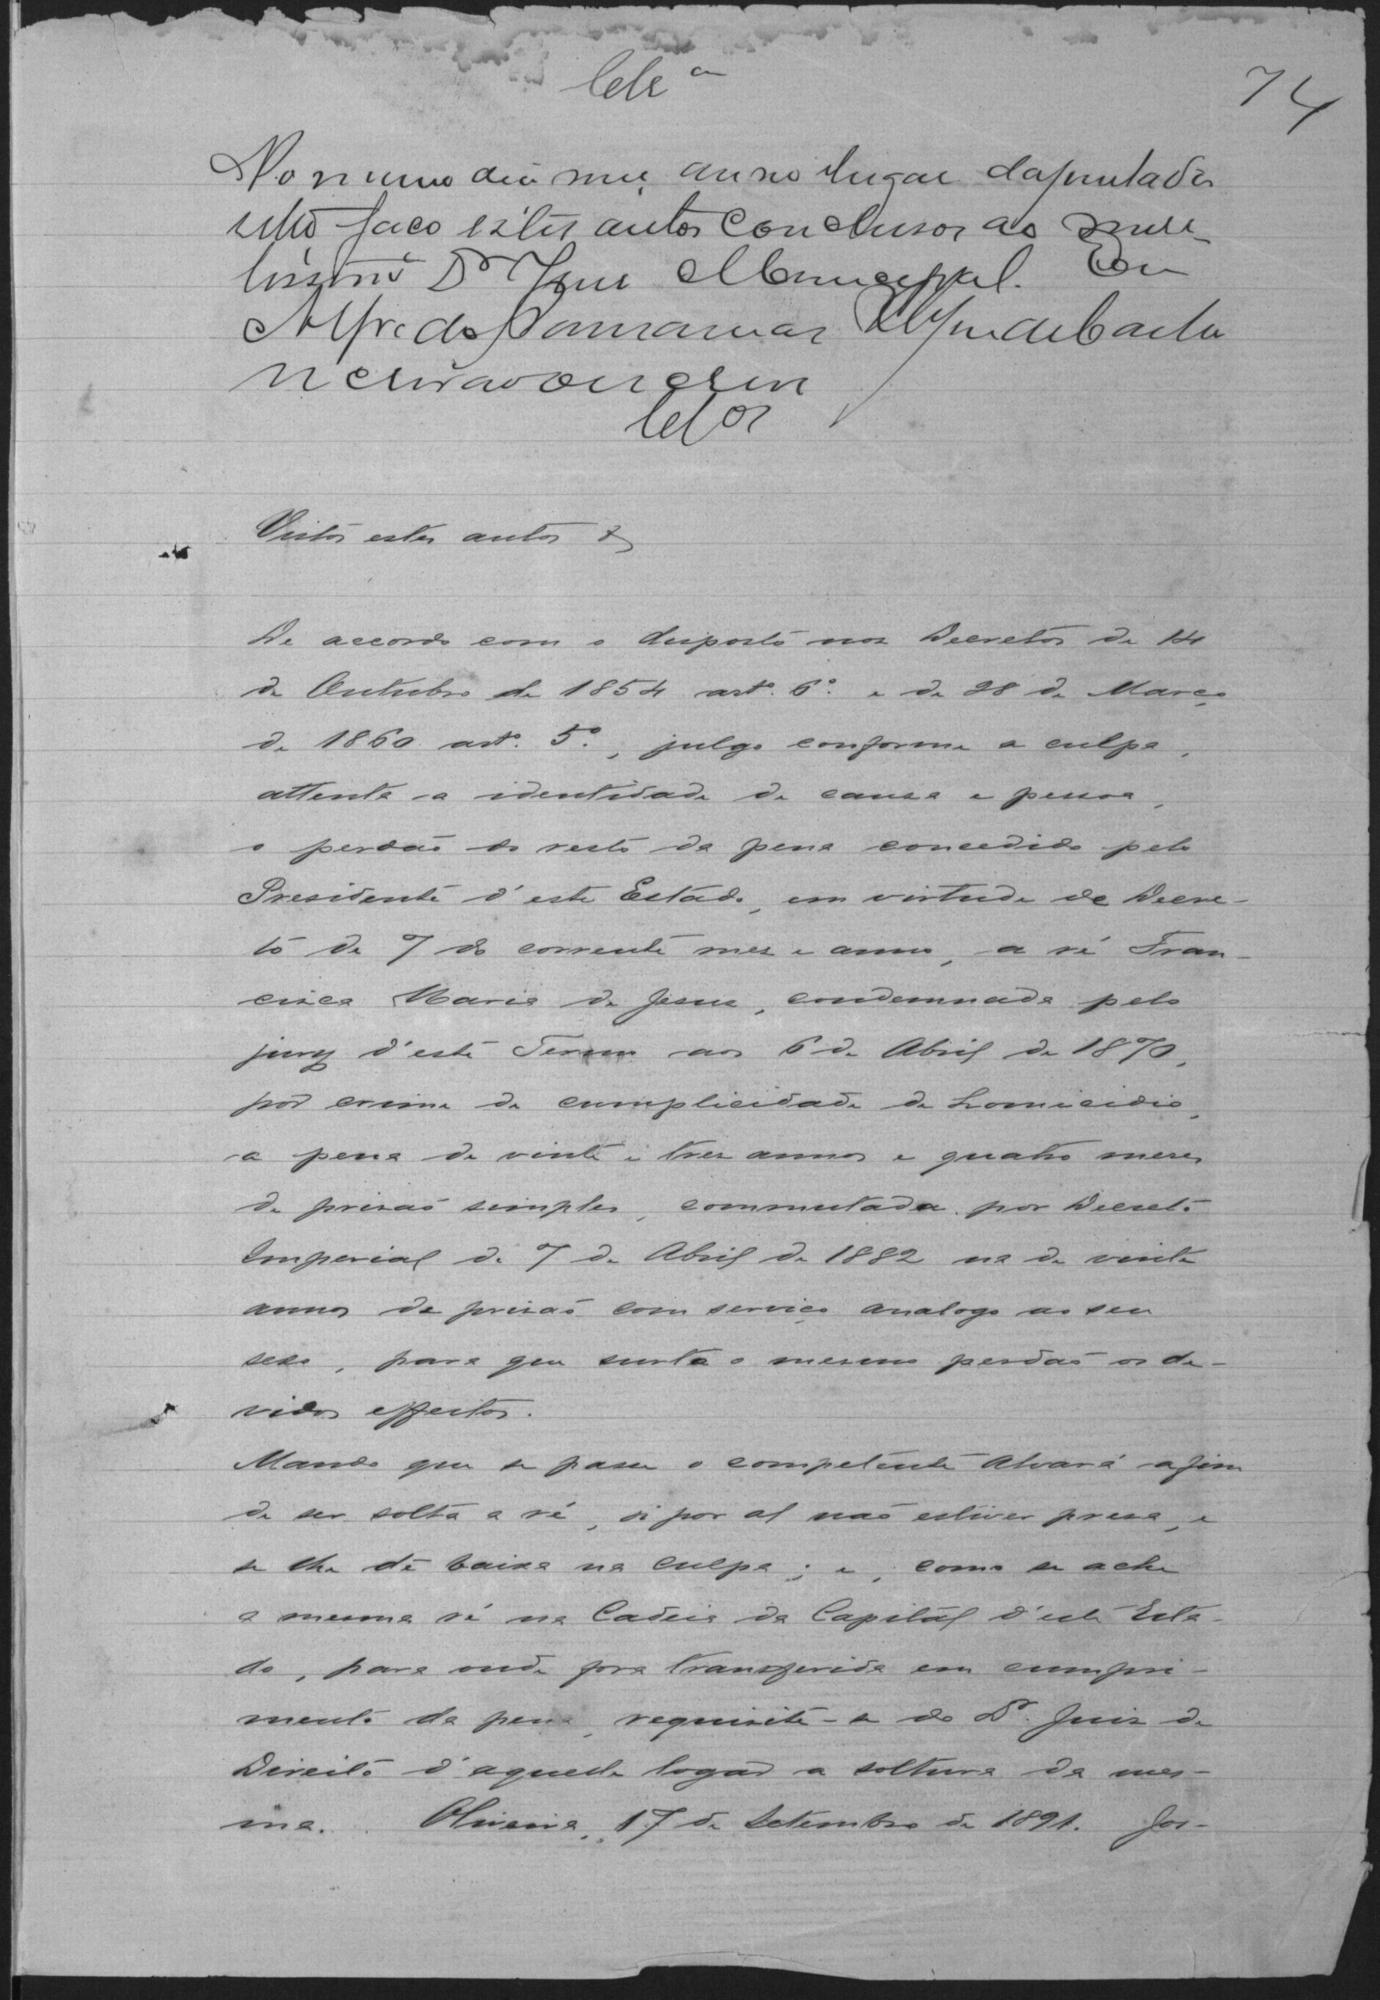 Cls.ª
74
No mesmo dia, mez, anno lugar da juntada
retro faço estes autos conclusos ao mere-
tissimo Dr Juiz Municipal. Eu
Alfredo
escrivão escrevi
Clos
Vistos estes autos &
De accordo com o disposto nos Decretos de 14
de Outubro de 1854 art.º 6.º e de 28 de Março
de 1860 art.º 5.º, julgo conforme a culpa,
attenta a identidade de causa e pessoa,
o perdaõ do resto da pena concedido pelo
Presidente d'este Estado, em virtude de Decre-
to de 7 do corrente mez e anno, a ré Fran-
cisca Maria de Jesus, condemnada pelo
jury d'este Termo aos 6 de Abril de 1870,
por crime de cumplicidade de homicidio,
a pena de vinte e tres annos e quatro meses
de prisaõ simples, commutada por Decreto
Imperial de 7 de Abril de 1882 na de vinte
annos de prisaõ com serviço analogo ao seu
sexo, para que surta o mesmo perdaõ os de-
vidos effeitos.
Mando que se passe o competente Alvará afim
de ser solta a ré, si por al naõ estiver presa, e
se lhe dê baixa na culpa; e, como se ache
a mesma ré na Cadeia da Capital d'este Esta-
do, para onde fora transferida em cumpri-
mento da pena, requisite-se do Dr. Juiz de
Direito d'aquelle logar a soltura da mes-
ma. Oliveira, 17 de Setembro de 1891. Jos-